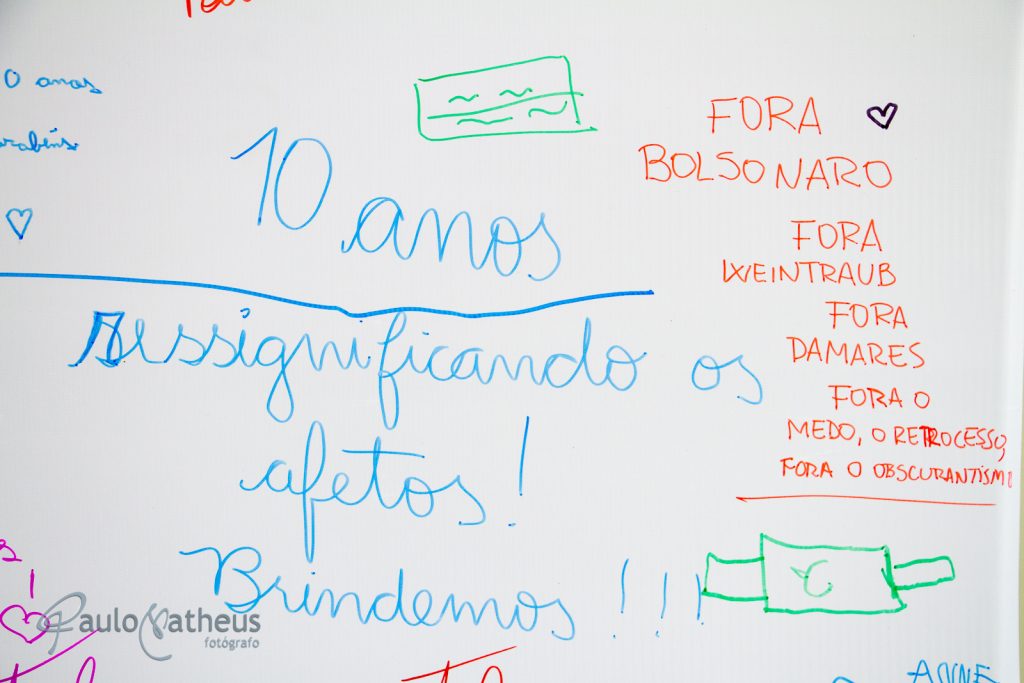 0 anos
10 anos
ressignificando os
afetos!
Brindemos !!!
FORA
BOLSONARO
FORA
WEINTRAUB
FORA
DAMARES
FORA O
MEDO, O RETROCESSO,
FORA O OBSCURANTISMO
Paulo Matheus
fotógrafo
ANNE